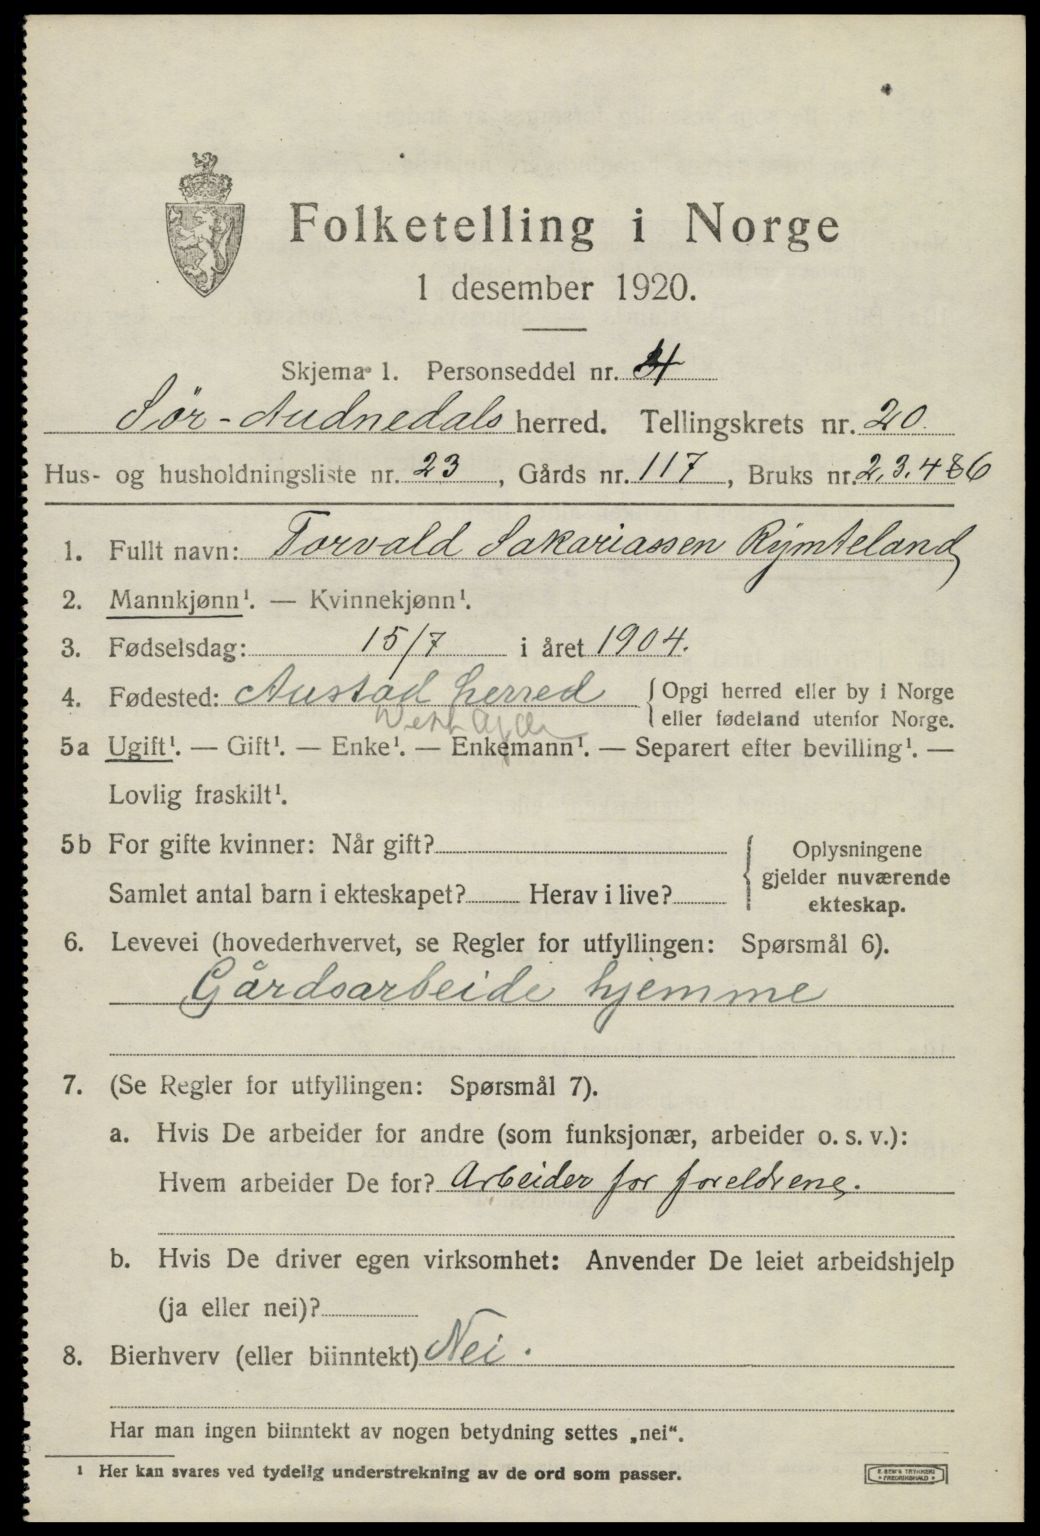 Folketelling i Norge
1 desember 1920.
Skjema 1. Personseddel nr. 4
Sør-Audnedals herred. Tellingskrets nr. 20.
Hus- og husholdningsliste nr. 23, Gårds nr. 117, Bruks nr. 2, 3, 4 & 6
1. Fullt navn: Torvald Sakariassen Rymteland
2. Mannkjønn¹. — Kvinnekjønn¹.
3. Fødselsdag: 15/7 i året 1904.
4. Fødested: Austad herred { Opgi herred eller by i Norge
eller fødeland utenfor Norge.
Vest Agder
5a Ugift¹. — Gift¹. — Enke¹. — Enkemann¹. — Separert efter bevilling¹. —
Lovlig fraskilt¹.
5b For gifte kvinner: Når gift?
Samlet antal barn i ekteskapet? Herav i live?
{ Oplysningene
gjelder nuværende
ekteskap.
6. Levevei (hovederhvervet, se Regler for utfyllingen: Spørsmål 6).
Gårdsarbeide hjemme
7. (Se Regler for utfyllingen: Spørsmål 7).
a. Hvis De arbeider for andre (som funksjonær, arbeider o. s. v.):
Hvem arbeider De for? Arbeider for foreldrene.
b. Hvis De driver egen virksomhet: Anvender De leiet arbeidshjelp
(ja eller nei)?
8. Bierhverv (eller biinntekt) Nei.
Har man ingen biinntekt av nogen betydning settes „nei“.
¹ Her kan svares ved tydelig understrekning av de ord som passer.